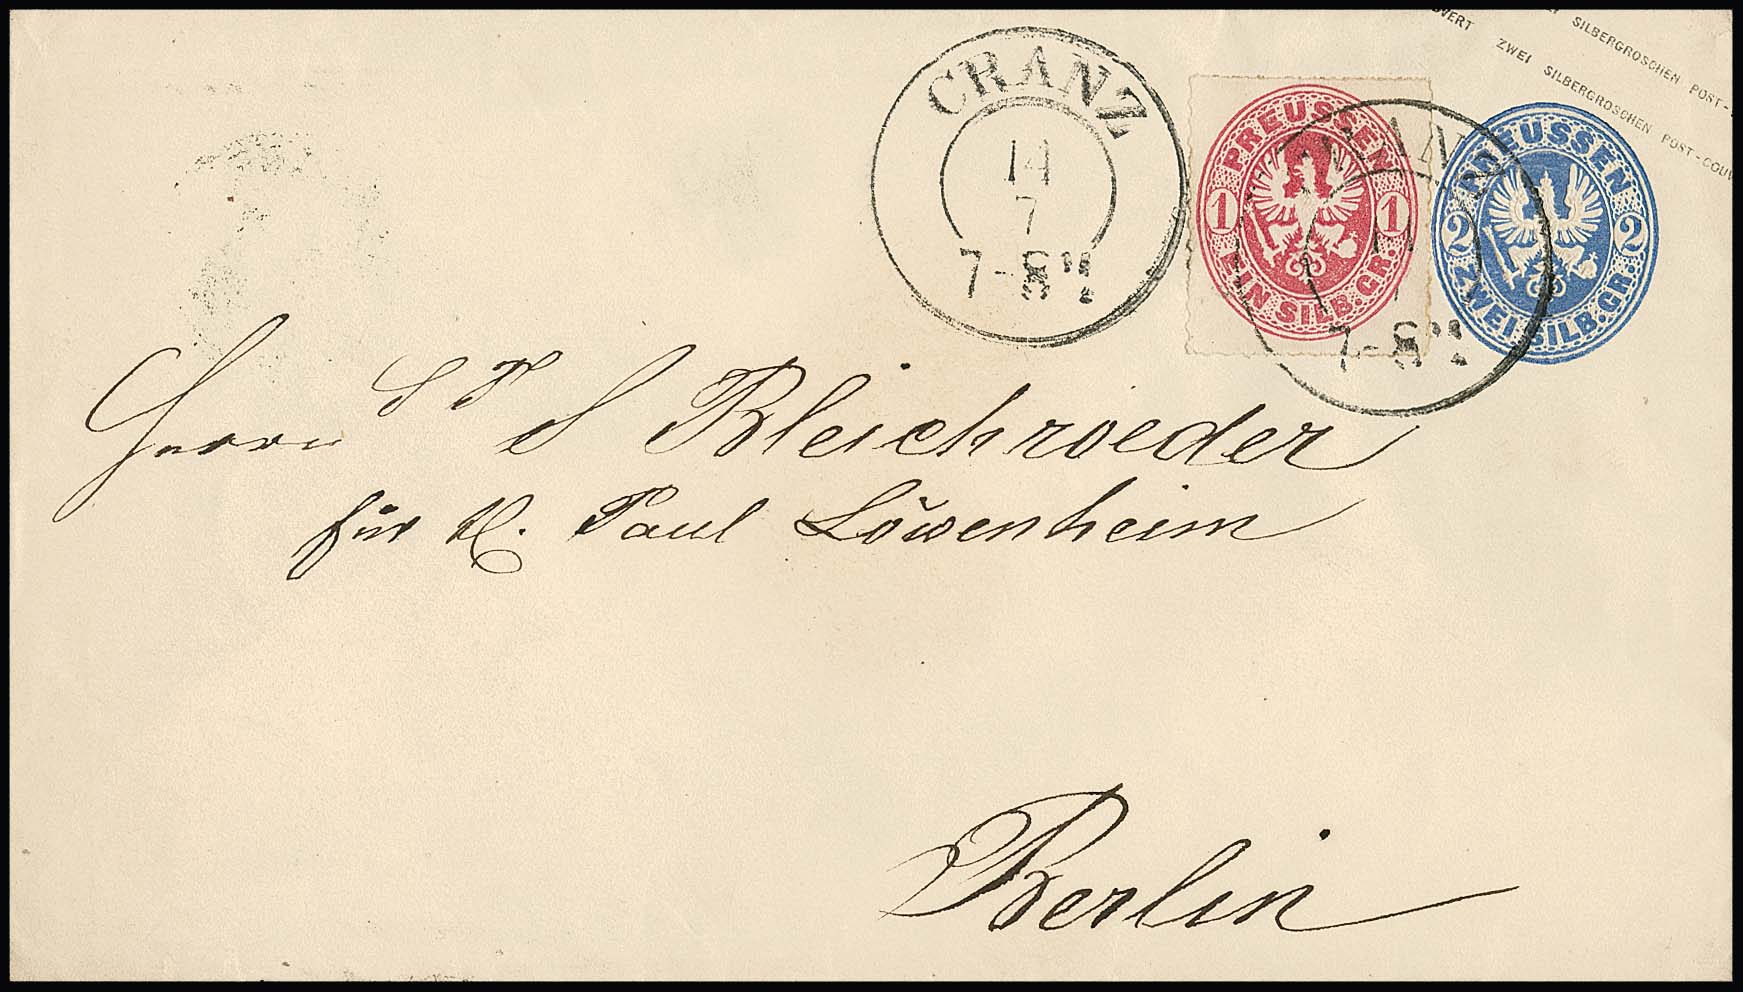 SILBERGROSCHEN POST-
ZWEI SILBERGROSCHEN POST-COUV
CRANZ
14
7
7-8
PREUSSEN
1 1
EIN SILB.GR.
PREUSSEN
2 2
ZWEI.SILB.GR.
7-8
Herrn S. Bleichroeder
für H. Paul Löwenheim
Berlin